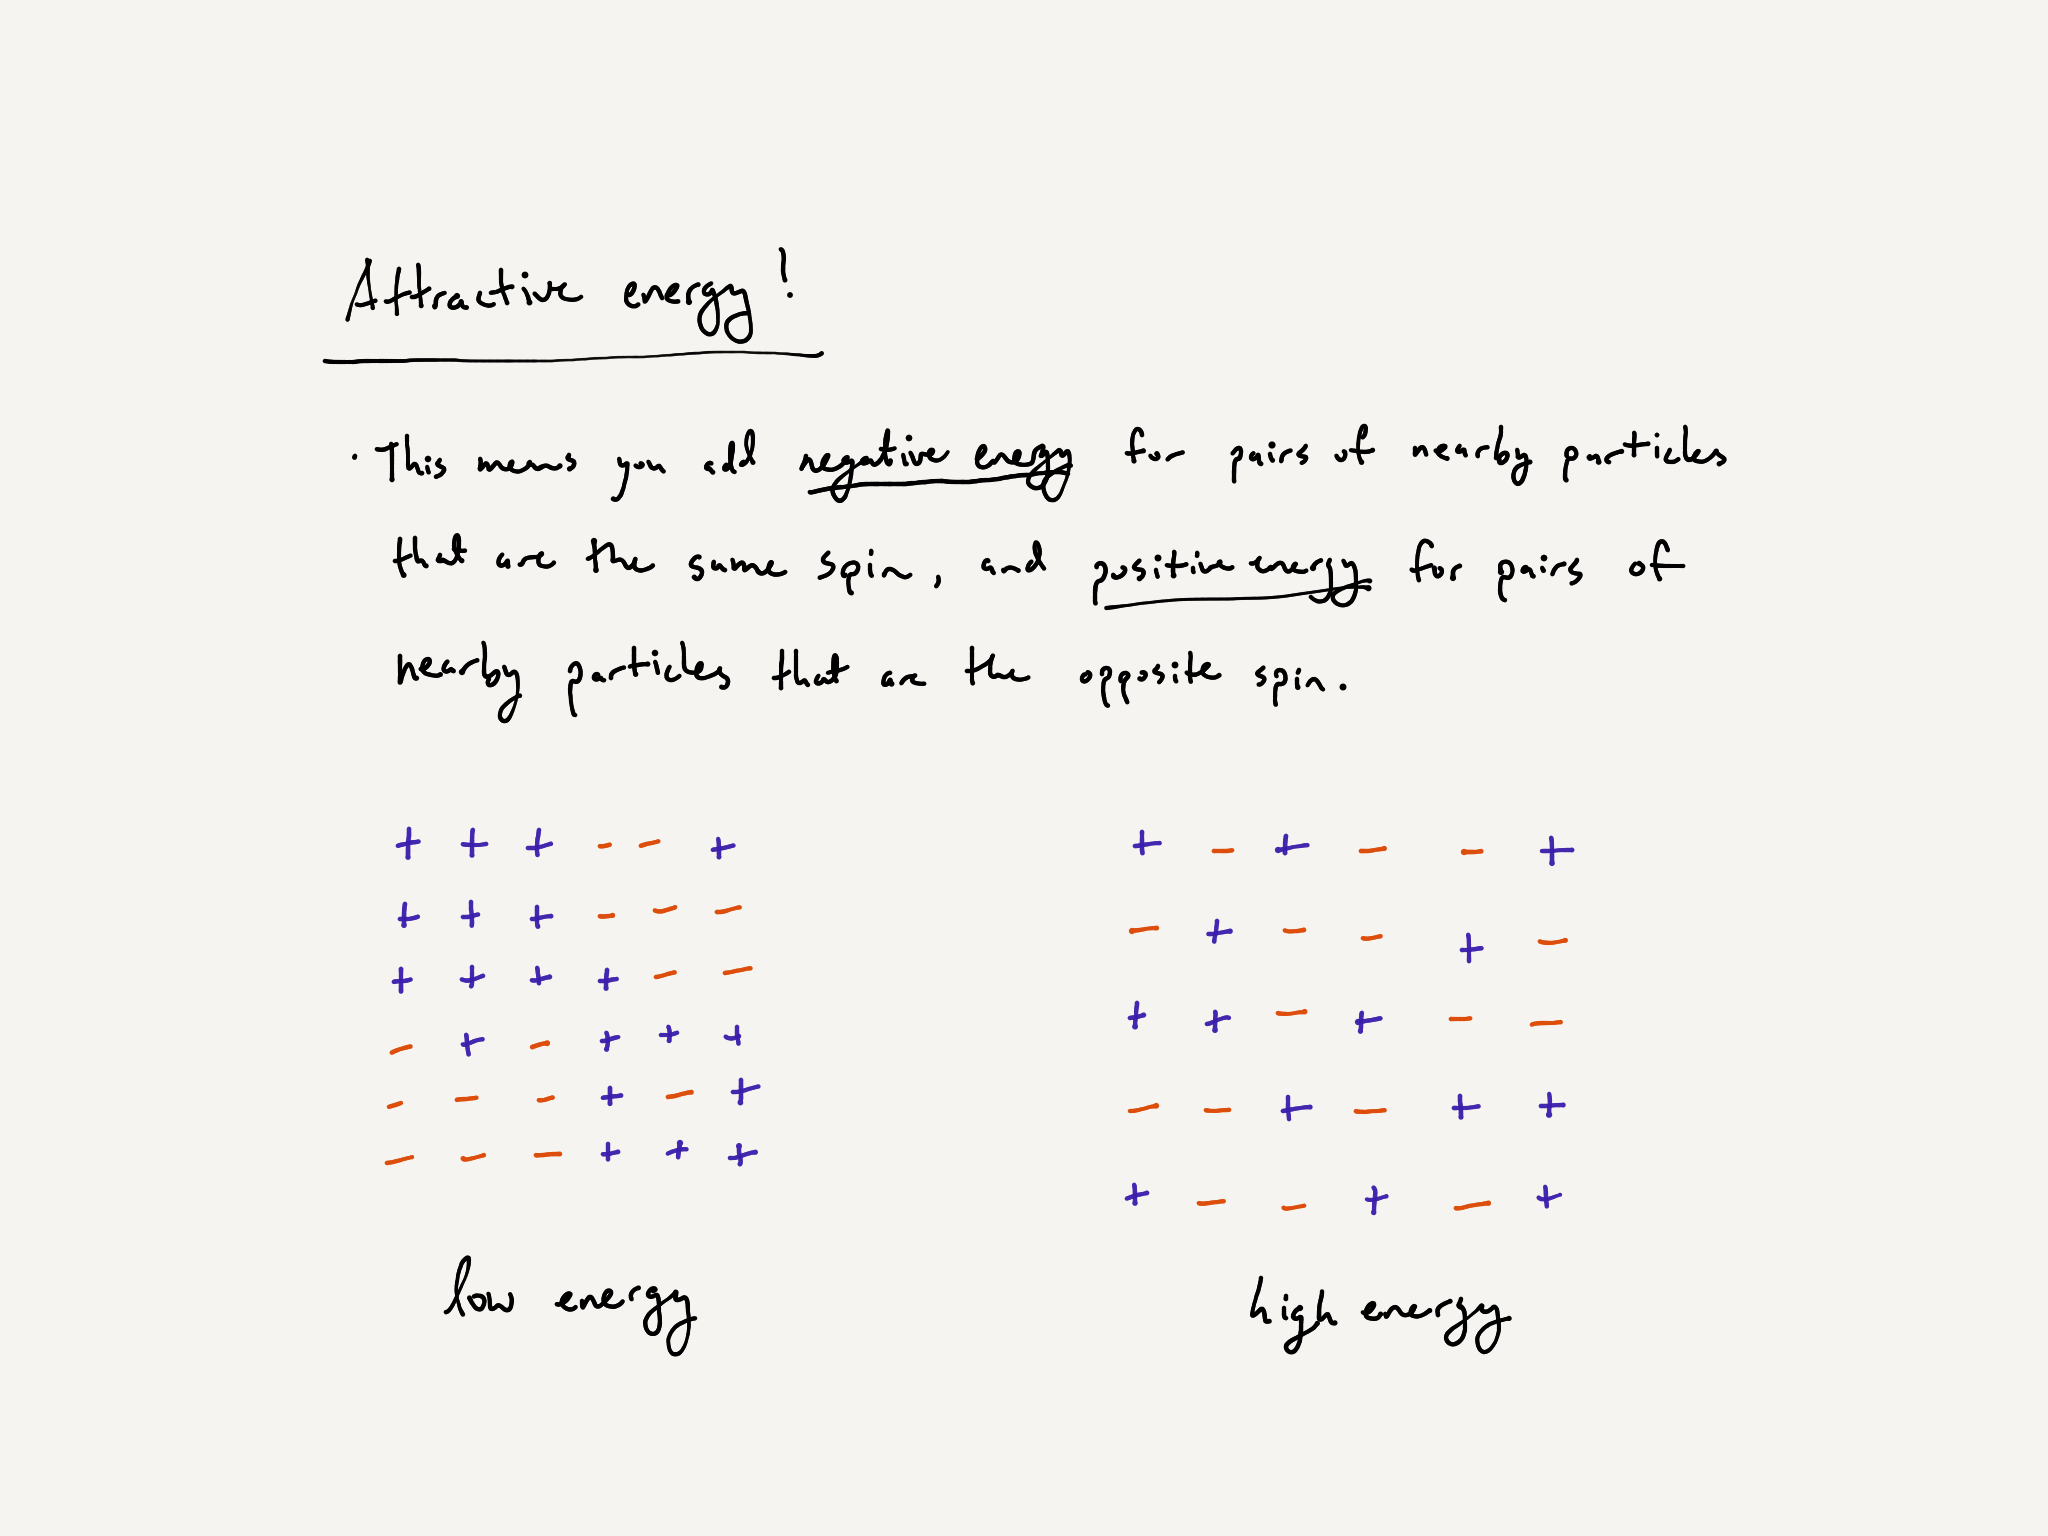 Attractive energy!
· This means you add negative energy for pairs of nearby particles
that are the same spin, and positive energy for pairs of
nearby particles that are the opposite spin.
+ + + - - +
+ + + - - -
+ + + + - -
- + - + + +
- - - + - +
- - - + + +
low energy
+ - + - - +
- + - - + -
+ + - + - -
- - + - + +
+ - - + - +
high energy